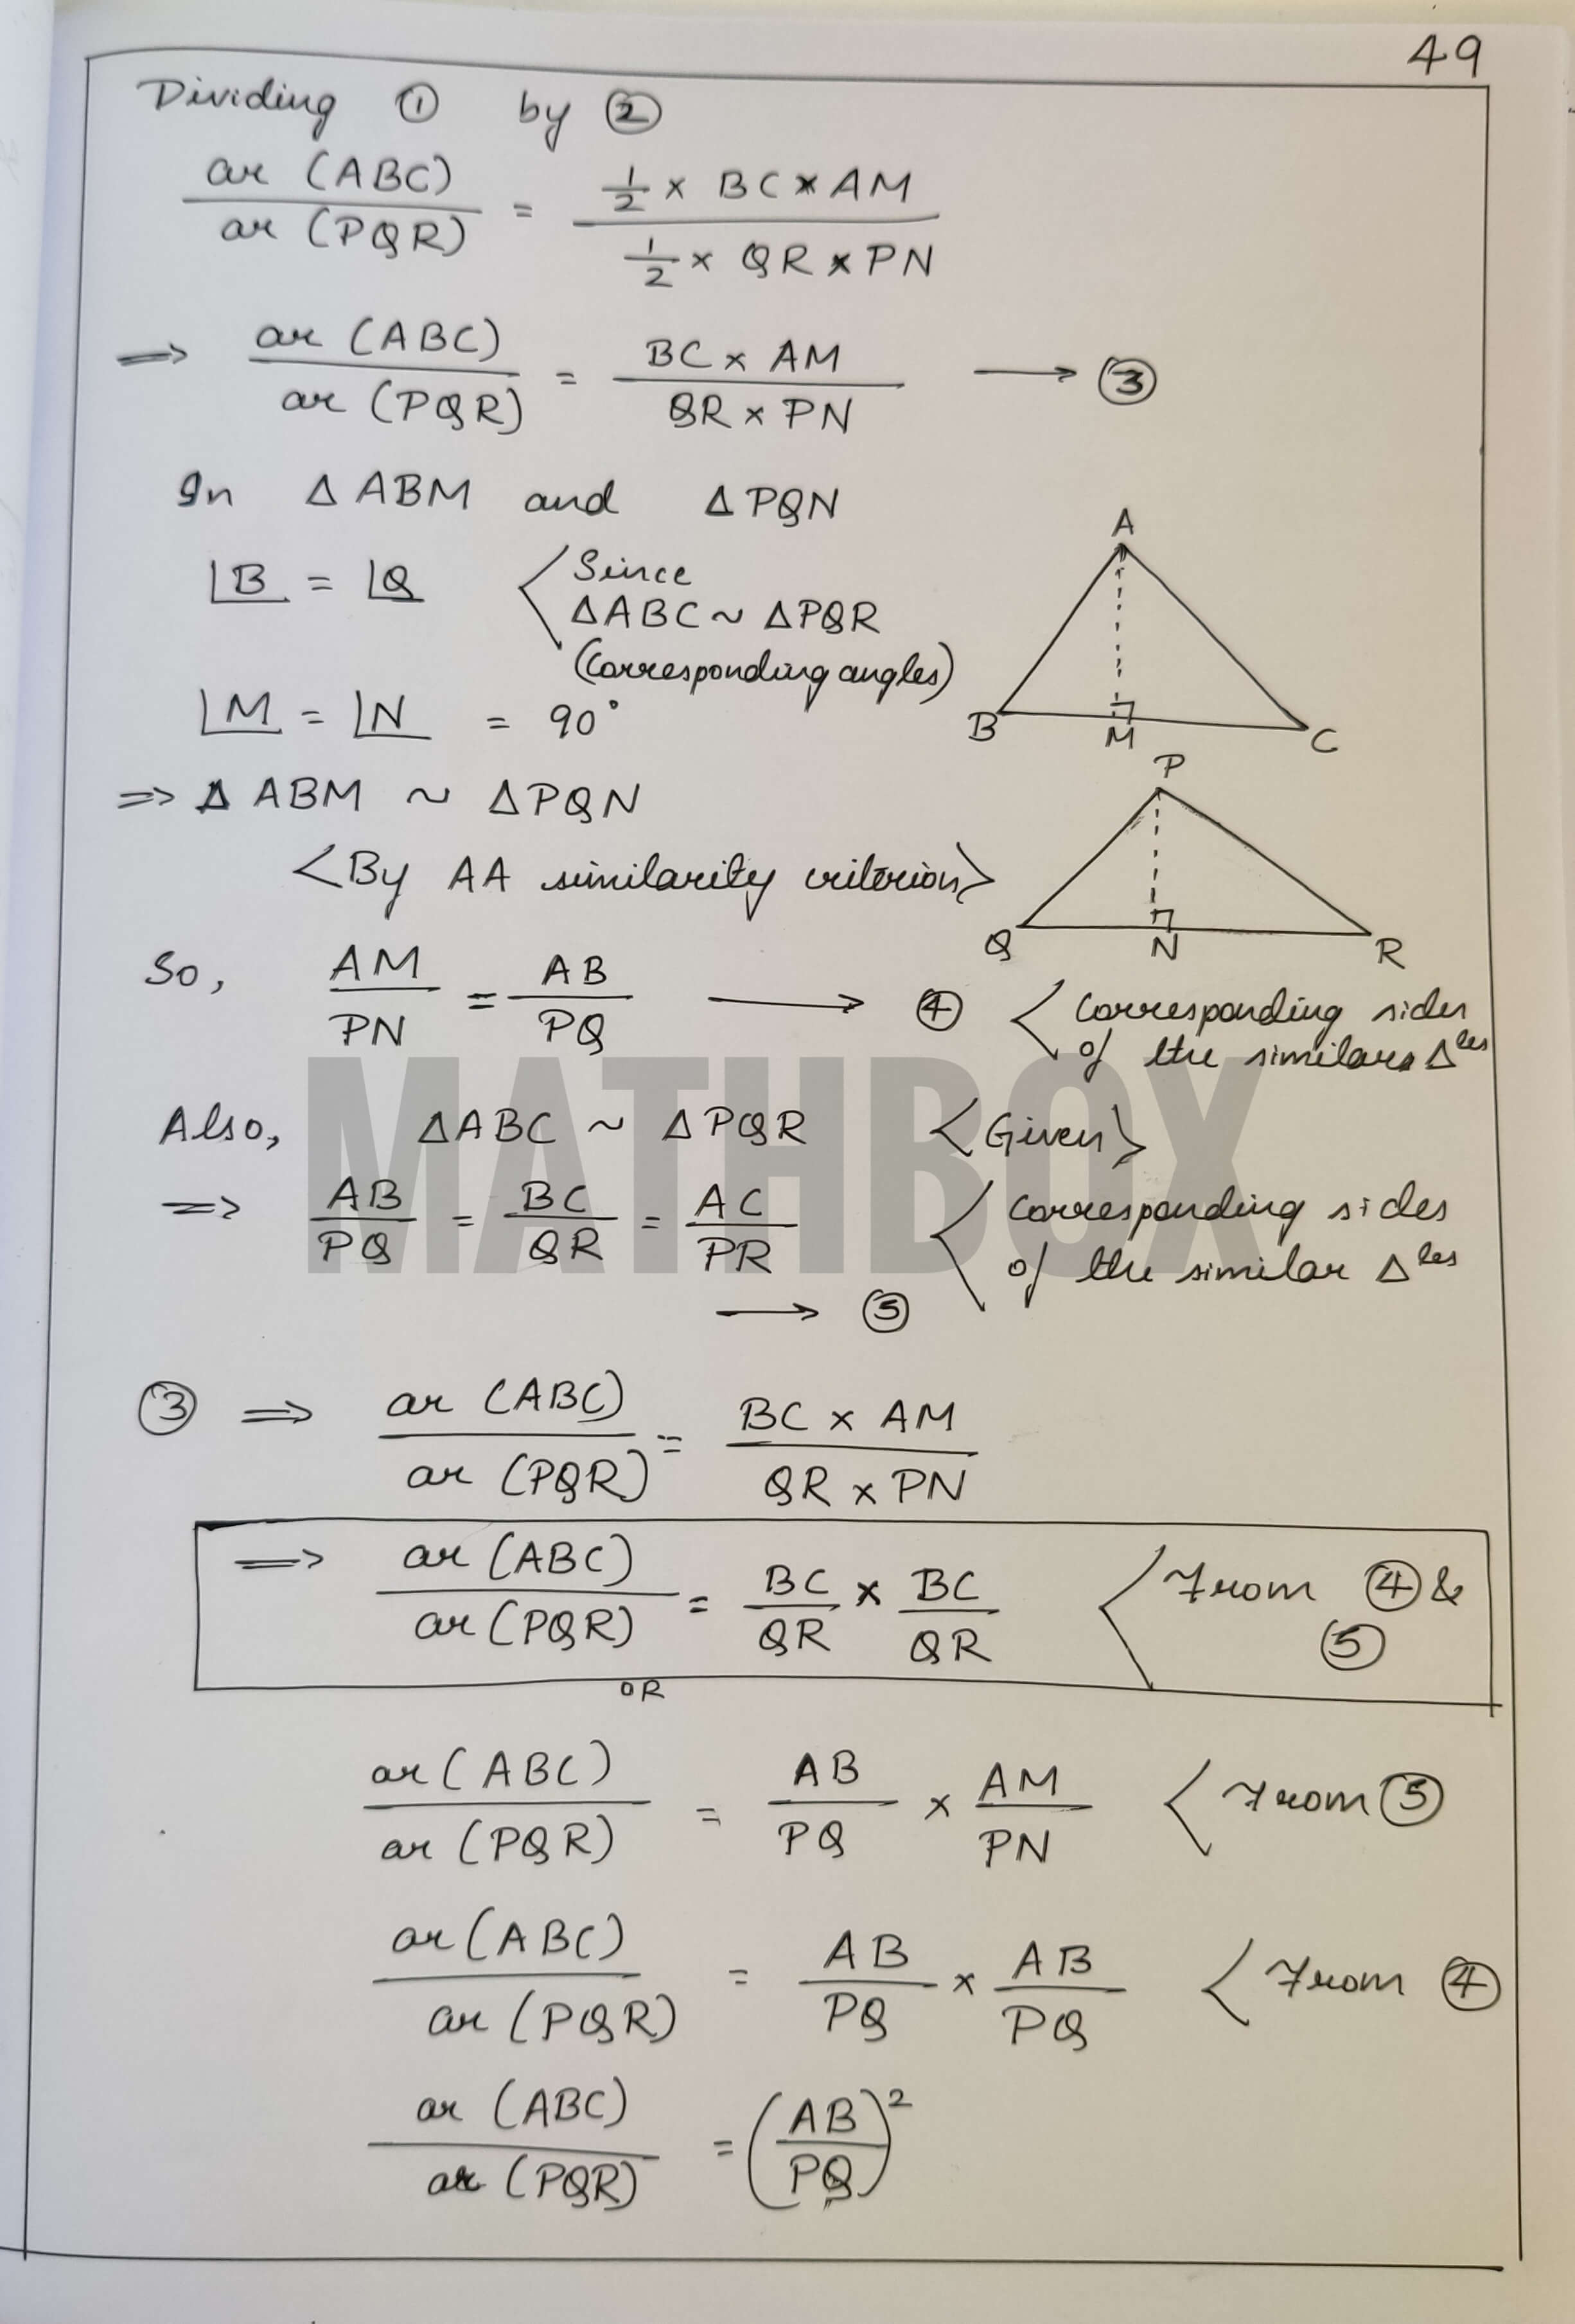 49
Dividing ① by ②
ar (ABC) / ar (PQR) = 1/2 × BC × AM / 1/2 × QR × PN
⇒ ar (ABC) / ar (PQR) = BC × AM / QR × PN ⟶ ③
In Δ ABM and Δ PQN
∠B = ∠Q < Since
ΔABC ~ ΔPQR
(Corresponding angles)
∠M = ∠N = 90°
⇒ Δ ABM ~ ΔPQN
<By AA similarity criterion>
A
B M C
P
Q N R
So, AM / PN = AB / PQ ⟶ ④ < Corresponding sides
of the similar Δles
Also, ΔABC ~ ΔPQR <Given>
⇒ AB / PQ = BC / QR = AC / PR < Corresponding sides
of the similar Δles
⟶ ⑤
③ ⇒ ar (ABC) / ar (PQR) = BC × AM / QR × PN
⇒ ar (ABC) / ar (PQR) = BC / QR × BC / QR < From ④ &
⑤
OR
ar (ABC) / ar (PQR) = AB / PQ × AM / PN < From ⑤
ar (ABC) / ar (PQR) = AB / PQ × AB / PQ < From ④
ar (ABC) / ar (PQR) = (AB / PQ)²
MATHBOX